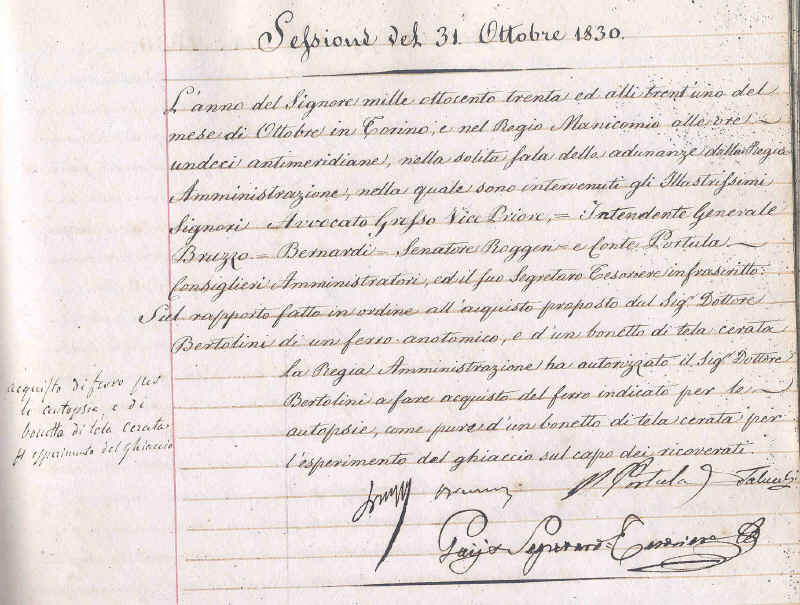 Sessione del 31. Ottobre 1830.
L'anno del Signore mille ottocento trenta ed alli trent'uno del
mese di Ottobre in Torino, e nel Regio Manicomio alle ore
undeci antimeridiane, nella solita sala delle adunanze della Regia
Amministrazione, nella quale sono intervenuti gli Illustrissimi
Signori Avvocato Grosso Vice Priore, = Intendente Generale
Bruzzo = Bernardi = Senatore Roggeri = e Conte Portula
Consiglieri Amministratori, ed il suo Segretaro Tesoriere infrascritto:
Sul rapporto fatto in ordine all'acquisto proposto dal Sig.r Dottore
Bertolini di un ferro anatomico, e d'un bonetto di tela cerata
La Regia Amministrazione ha autorizzato il Sig.r Dottore
Bertolini a fare acquisto del ferro indicato per le
autopsie, come pure d'un bonetto di tela cerata per
l'esperimento del ghiaccio sul capo dei ricoverati.
acquisto di ferro per
le autopsie, e di
bonetto di tela cerata
esperimento del ghiaccio
Portula
Segretaro Tesoriere